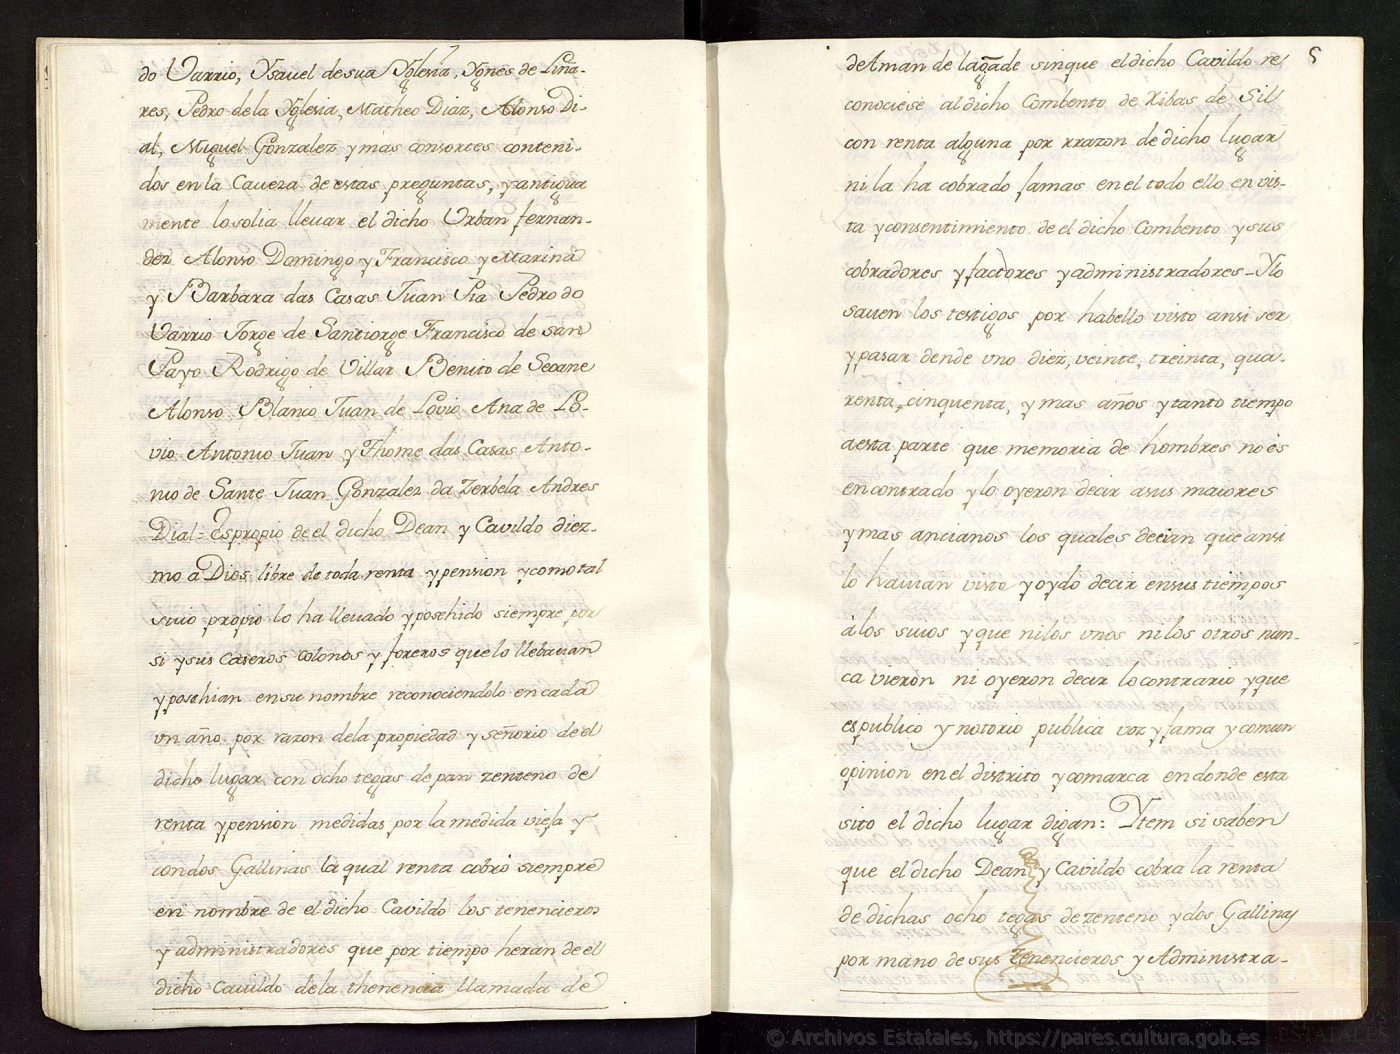 do Varrio, Ysavel de sua Yglesia, Ygnes de Liña-
res, Pedro de la Yglesia, Matheo Diaz, Alonso Di-
al, Miguel Gonzalez y mas consortes conteni-
dos en la Caveza de estas preguntas, y antigua
mente lo solia llevar el dicho Urban fernan-
dez Alonso Domingo y Francisco y Marina
y Barbara das Casas Juan Pia Pedro do
Varrio Jorge de Santiorge Francisco de San
Payo Rodrigo de Villar Benito de Seoane
Alonso Blanco Juan de Lovio Ana de Lo-
vio Antonio Juan y Thome das Casas Anto-
nio de Sante Juan Gonzalez da Zerbela Andres
Dial = Es propio de el dicho Dean y Cavildo diez-
mo a Dios libre de toda renta y pension y como tal
suio propio lo ha llevado y posehido siempre por
si y sus caseros colonos y foreros que lo llebavan
y posehian en su nombre reconociendolo en cada
un año por razon de la propiedad y señorio de el
dicho lugar con ocho tegas de pan zenteno de
renta y pension medidas por la medida vieja y
con dos Gallinas la qual renta cobró siempre
en nombre de el dicho Cavildo los tenencieros
y administradores que por tiempo heran de el
dicho Cavildo de la thenencia llamada de
5
de Aman de lagade sin que el dicho Cavildo re
conociese al dicho Combento de Ribas de Sil
con renta alguna por rrazon de dicho lugar
ni la ha cobrado jamas en el todo ello en vis-
ta y consentimiento de el dicho Combento y sus
cobradores y factores y administradores - Y lo
saven los testigos por habello visto ansi ser
y pasar dende uno diez, veinte, treinta, qua-
renta, cinquenta, y mas años y tanto tiempo
a esta parte que memoria de hombres no es
en contrado y lo oyeron decir a sus maiores
y mas ancianos los quales decian que ansi
lo havian visto y oydo decir en sus tiempos
á los suios y que ni los unos ni los otros nun-
ca vieron ni oyeron decir lo contrario y que
es publico y notorio publica voz y fama y comun
opinion en el distrito y comarca en donde esta
sito el dicho lugar digan: Ytem si saben
que el dicho Dean y Cavildo cobra la renta
de dichas ocho tegas de zenteno y dos Gallinas
por mano de sus tenencieros y Administra-
© Archivos Estatales, https://pares.cultura.gob.es